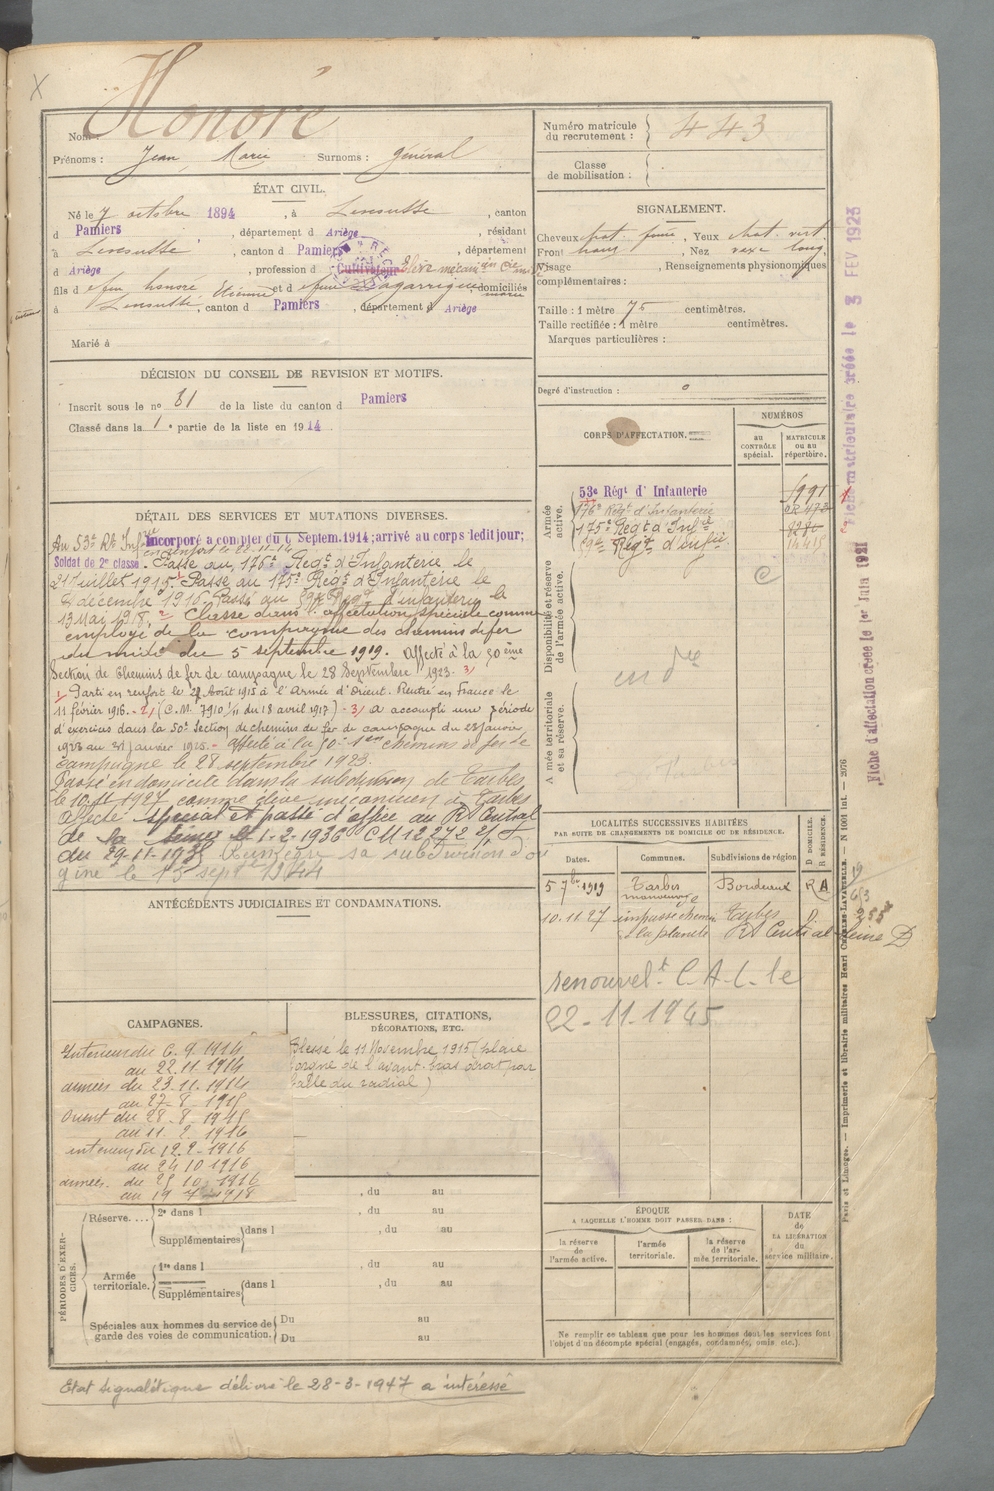 Honoré
Nom :
Prénoms : Jean Marie Surnoms : général
ÉTAT CIVIL.
Né le 7 octobre 1894, à Lescousse, canton
d Pamiers, département d Ariège, résidant
à Lescousse, canton d Pamiers, département
d Ariège, profession d Cultivateur élève mécanicien
fils d feu honoré Etienne et d feue Lagarrigue marie domiciliés
à Lescousse, canton d Pamiers, département d Ariège
Marié à
DÉCISION DU CONSEIL DE REVISION ET MOTIFS.
Inscrit sous le nº 81 de la liste du canton d Pamiers
Classé dans la 1e partie de la liste en 1914
DÉTAIL DES SERVICES ET MUTATIONS DIVERSES.
Au 53e Rt Infrie Incorporé a compter du 6 Septem. 1914; arrivé au corps ledit jour;
en renfort le 22-11-14
Soldat de 2e classe. Passe au 176e Regt d'Infanterie le
21 juillet 1915. Passe au 175e Regt d'Infanterie le
décembre 1916. Passé au 59e Regt d'infanterie le
13 Mai 1918. 2 Classé dans l'affectation spéciale comme
employé de la compagnie des chemins de fer
du midi du 5 septembre 1919. Affecté à la 50ème
Section de Chemins de fer de campagne le 28 Septembre 1923. 3/
1/ Parti en renfort le 27 Août 1915 à l'Armée d'Orient. Rentré en France le
11 février 1916. - 2/ (C.M. 7910 1/11 du 18 avril 1917) - 3/ A accompli une période
d'exercices dans la 50e Section de chemins de fer de campagne du
au 31 janvier 1925. - Affecté à la 50e Son chemins de fer de
campagne le 28 septembre 1923.
Passé en domicile dans la subdivision de Tarbes
le 10.11.1927 comme élève mécanicien à Tarbes
Affecté spécial et passé d'office au R Central
de la Seine le 1-2-1936 CM 12272
du 29-11-1935 Réintègre sa subdivision d'ori
gine le 15 sept 1944
ANTÉCÉDENTS JUDICIAIRES ET CONDAMNATIONS.
CAMPAGNES.
Interieur du 6.9.1914
au 22.11.1914
armées du 23.11.1914
au 27-8-1915
Orient du 28.8.1915
au 11.2.1916
interieur du 12.2-1916
au 24 10 1916
armées. du 25 10 1916
au 19 7 1918
BLESSURES, CITATIONS,
DÉCORATIONS, ETC.
Blessé le 11 Novembre 1915 (plaie
de l'avant-bras droit par
balle du radial)
, du au
PÉRIODES D'EXERCICES.
Réserve.... 2e dans l , du au
Supplémentaires dans l , du au
Armée territoriale. 1re dans l , du au
Supplémentaires dans l , du au
Spéciales aux hommes du service de garde des voies de communication. Du au
Du au
Etat signalétique délivré le 28-3-1947 a intéressé
Numéro matricule du recrutement : 443
Classe de mobilisation :
SIGNALEMENT.
Cheveux chat. foncé, Yeux chat. vert
Front haut, Nez vexe long
Visage , Renseignements physionomiques
complémentaires :
Taille : 1 mètre 75 centimètres.
Taille rectifiée : 1 mètre centimètres.
Marques particulières :
Degré d'instruction :
CORPS D'AFFECTATION.
NUMÉROS
au CONTRÔLE spécial.
MATRICULE OU AU répertoire.
Armée active.
53e Régt d' Infanterie
176e Regt d'Infanterie
175e Regt d'Infie
59e Regt d'infie
14415
Disponibilité et réserve de l'armée active.
Armée territoriale et sa réserve.
LOCALITÉS SUCCESSIVES HABITÉES
PAR SUITE DE CHANGEMENTS DE DOMICILE OU DE RÉSIDENCE.
D DOMICILE. R RÉSIDENCE.
Dates. Communes. Subdivisions de région
5 7bre 1919 Tarbes manoeuvre Bordeaux R A
10.11.27 impasse chemin de la planete Tarbes D
R Central Seine D
renouvelt C.A.L. le
22-11-1945
ÉPOQUE
A LAQUELLE L'HOMME DOIT PASSER DANS :
la réserve de l'armée active.
l'armée territoriale.
la réserve de l'armée territoriale.
DATE de LA LIBÉRATION du service militaire.
Ne remplir ce tableau que pour les hommes dont les services font
l'objet d'un décompte spécial (engagés, condamnés, omis etc.).
Fiche matriculaire créée le 3 FEV 1923
Fiche d'affectation créée le 1er Juin 1921
Paris et Limoges. — Imprimerie et librairie militaires Henri CHARLES-LAVAUZELLE. — N 1001 int. — 2076